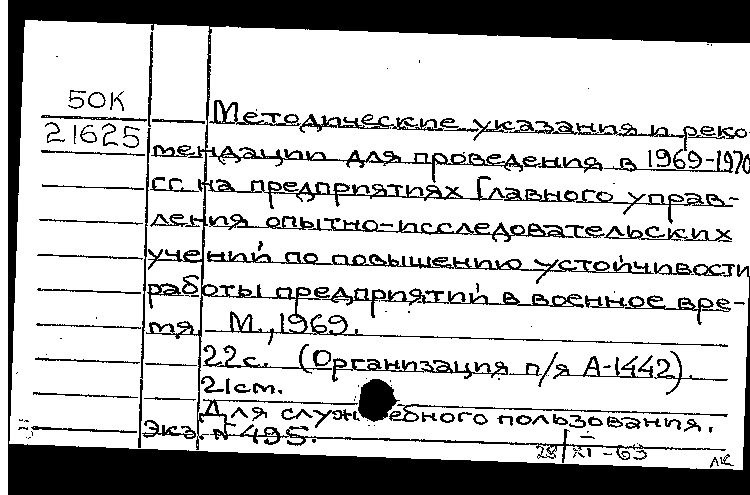 50К
21625
Методические указания и реко
мендации для проведения в 1969-1970
гг на предприятиях Главного управ-
ления опытно-исследовательских
учений по повышению устойчивости
работы предприятий в военное вре-
мя. М., 1969.
22с. (Организация п/я А-1442).
21см.
Для служебного пользования.
Экз. № 495.
28/XI-69